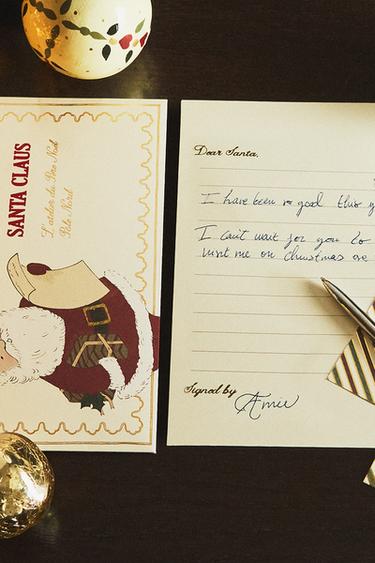 SANTA CLAUS
L'atelier du Père Noël
Pôle Nord
Dear Santa,
I have been so good this y
I can't wait for you to
visit me on Christmas eve
Signed by
Amie